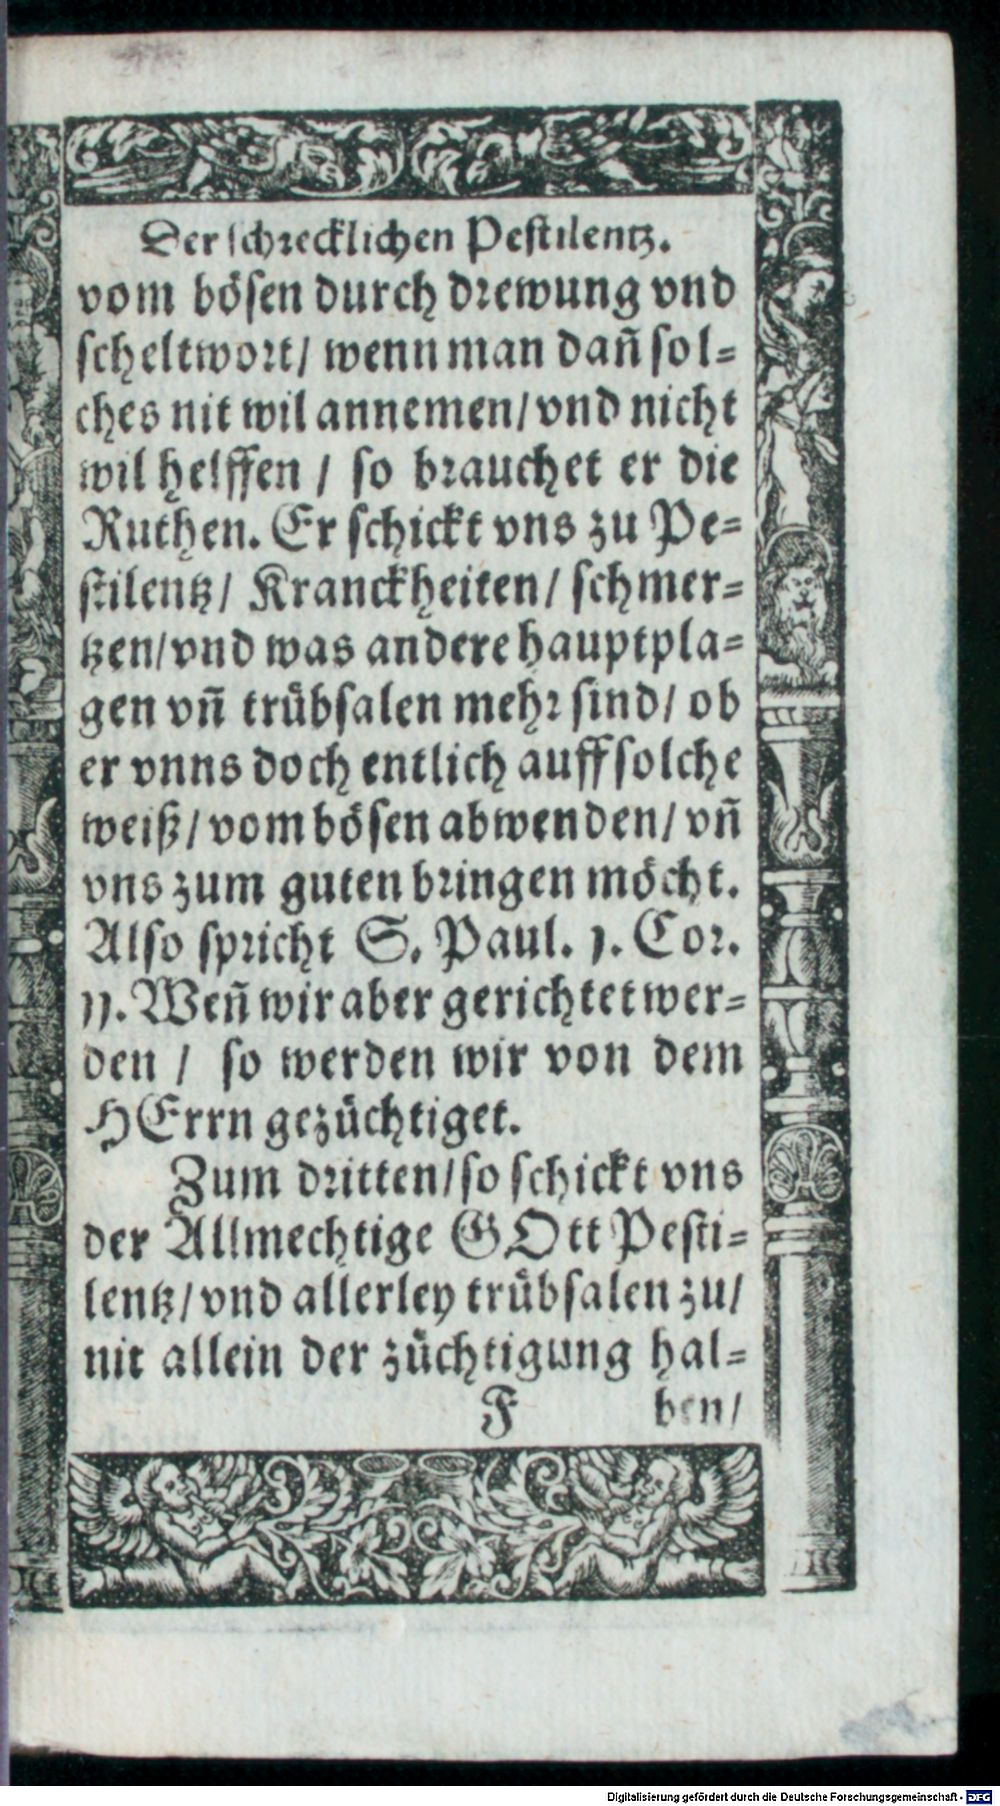 Der schrecklichen Pestilentz.
vom bösen durch drewung vnd
scheltwort/ wenn man dañ sol-
ches nit wil annemen/ vnd nicht
wil helffen / so brauchet er die
Ruthen. Er schickt vns zu Pe-
stilentz/ Kranckheiten/ schmer-
tzen/ vnd was andere hauptpla-
gen vñ trübsalen mehr sind/ ob
er vnns doch entlich auff solche
weiß/ vom bösen abwenden/ vñ
vns zum guten bringen möcht.
Also spricht S. Paul. 1. Cor.
11. Weñ wir aber gerichtet wer-
den / so werden wir von dem
HErrn gezüchtiget.
Zum dritten/ so schickt vns
der Allmechtige GOtt Pesti-
lentz/ vnd allerley trübsalen zu/
nit allein der züchtigung hal-
F ben/
Digitalisierung gefördert durch die Deutsche Forschungsgemeinschaft - DFG